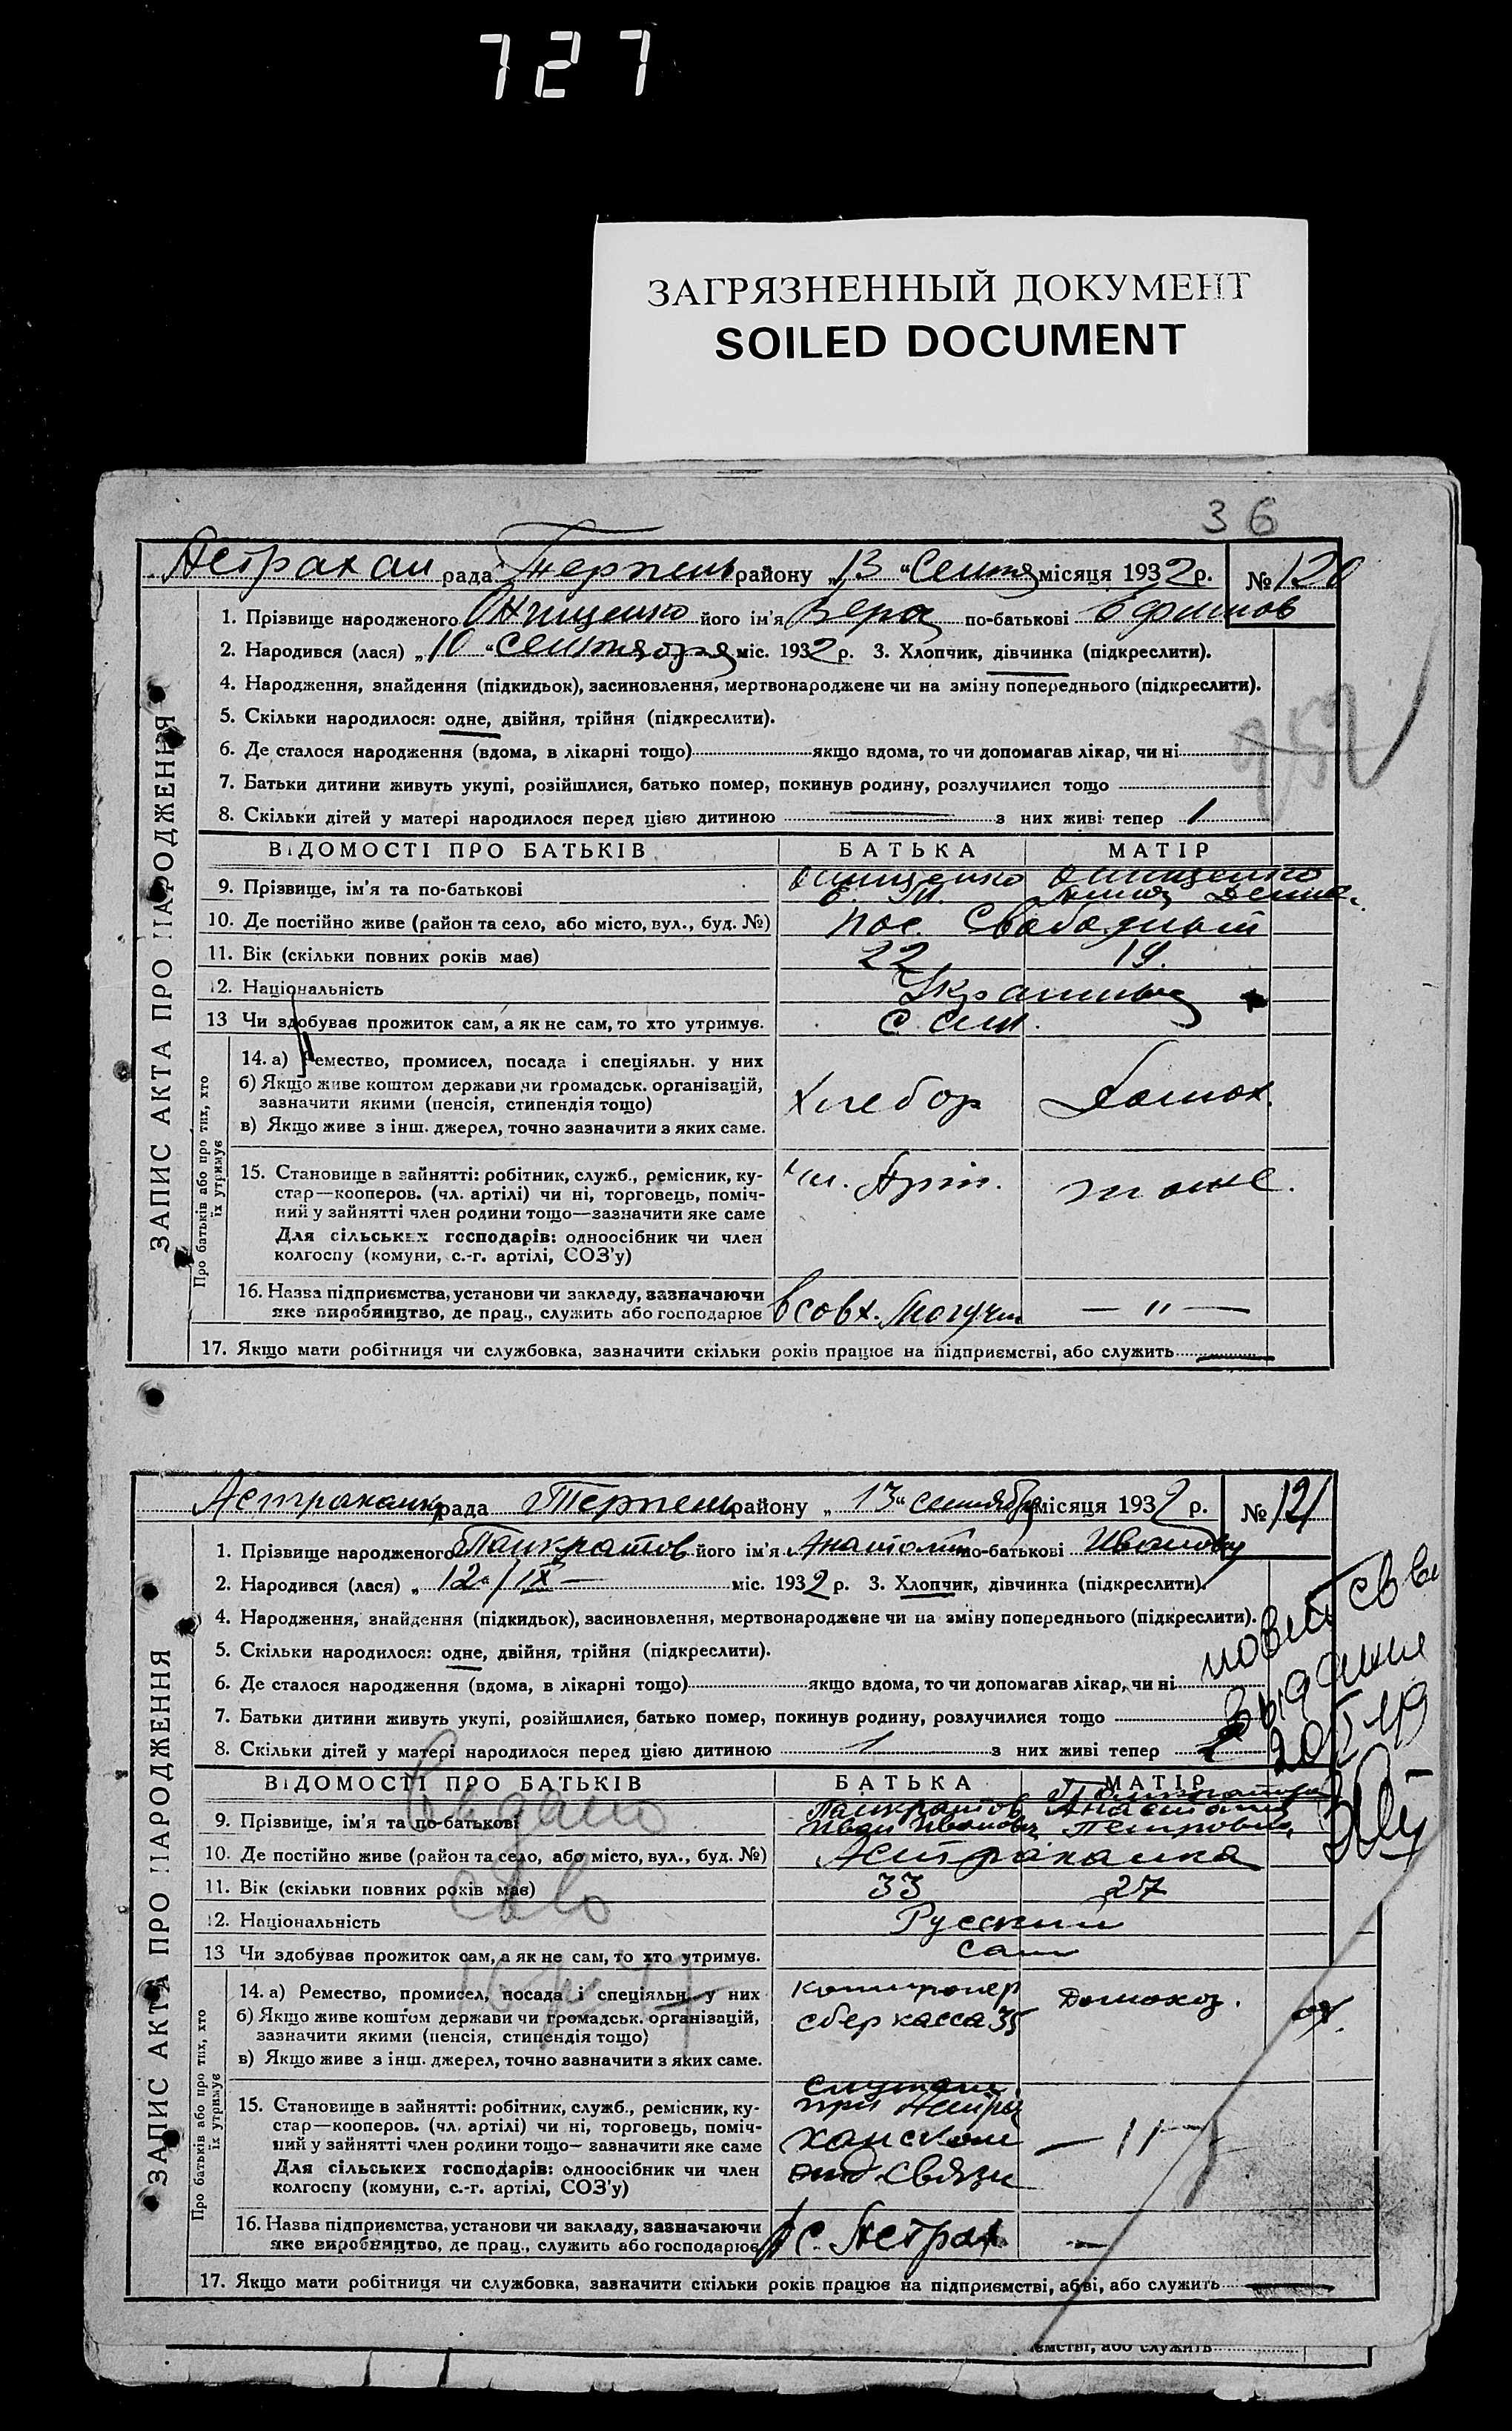 727
ЗАГРЯЗНЕННЫЙ ДОКУМЕНТ
SOILED DOCUMENT
36
Астрахан рада Терпень району „13“ Сентя місяця 1932 р. № 120
1. Прізвище народженого Онищенко його ім'я Вера по-батькові Ефимов
2. Народився (лася) „10“ сентября міс. 1932 р. 3. Хлопчик, дівчинка (підкреслити).
4. Народження, знайдення (підкидьок), засиновлення, мертвонароджене чи на зміну попереднього (підкреслити).
5. Скільки народилося: одне, двійня, трійня (підкреслити).
6. Де сталося народження (вдома, в лікарні тощо) якщо вдома, то чи допомагав лікар, чи ні
7. Батьки дитини живуть укупі, розійшлися, батько помер, покинув родину, розлучилися тощо
8. Скільки дітей у матері народилося перед цією дитиною — з них живі тепер 1
ВІДОМОСТІ ПРО БАТЬКІВ БАТЬКА МАТІР
9. Прізвище, ім'я та по-батькові Онищенко Онищенко
10. Де постійно живе (район та село, або місто, вул., буд. №) пос. Свободный
11. Вік (скільки повних років має) 22 19.
12. Національність Украинцы
13 Чи здобував прожиток сам, а як не сам, то хто утримує. сам.
14. а) Ремество, промисел, посада і спеціяльн. у них
б) Якщо живе коштом держави чи громадськ. організацій,
зазначити якими (пенсія, стипендія тощо)
в) Якщо живе з інш. джерел, точно зазначити з яких саме.
Хлебор Домох.
15. Становище в зайнятті: робітник, служб., ремісник, ку-
стар—кооперов. (чл. артілі) чи ні, торговець, поміч-
ний у зайнятті член родини тощо—зазначити яке саме
Для сільських господарів: одноосібник чи член
колгоспу (комуни, с.-г. артілі, СОЗ'у)
чл. Арт. тоже.
16. Назва підприємства, установи чи закладу, зазначаючи
яке виробництво, де прац., служить або господарює
в совх. — " —
17. Якщо мати робітниця чи службовка, зазначити скільки років працює на підприємстві, або служить —
ЗАПИС АКТА ПРО НАРОДЖЕННЯ
Про батьків або про тих, хто
їх утримує
Астраханка рада Терпень району „13“ сентября місяця 1932 р. № 121
1. Прізвище народженого Панкратов його ім'я Анатолий по-батькові Иванович
2. Народився (лася) „12“/IX — міс. 1932 р. 3. Хлопчик, дівчинка (підкреслити).
4. Народження, знайдення (підкидьок), засиновлення, мертвонароджене чи на зміну попереднього (підкреслити).
5. Скільки народилося: одне, двійня, трійня (підкреслити).
6. Де сталося народження (вдома, в лікарні тощо) якщо вдома, то чи допомагав лікар, чи ні
7. Батьки дитини живуть укупі, розійшлися, батько помер, покинув родину, розлучилися тощо
8. Скільки дітей у матері народилося перед цією дитиною 1 з них живі тепер 2
ВІДОМОСТІ ПРО БАТЬКІВ БАТЬКА МАТІР
9. Прізвище, ім'я та по-батькові Панкратов Иван Иванович Панкратова Анастасия Петровна
10. Де постійно живе (район та село, або місто, вул., буд. №) Астраханка
11. Вік (скільки повних років має) 33 27
12. Національність Русский
13 Чи здобував прожиток сам, а як не сам, то хто утримує. сам
14. а) Ремество, промисел, посада і спеціяльн. у них
б) Якщо живе коштом держави чи громадськ. організацій,
зазначити якими (пенсія, стипендія тощо)
в) Якщо живе з інш. джерел, точно зазначити з яких саме.
контролер
сберкасса 35
Домохоз.
15. Становище в зайнятті: робітник, служб., ремісник, ку-
стар—кооперов. (чл. артілі) чи ні, торговець, поміч-
ний у зайнятті член родини тощо— зазначити яке саме
Для сільських господарів: одноосібник чи член
колгоспу (комуни, с.-г. артілі, СОЗ'у)
при Астра
ханском
отд. связи
— " —
16. Назва підприємства, установи чи закладу, зазначаючи
яке виробництво, де прац., служить або господарює
с. Астрах. —
17. Якщо мати робітниця чи службовка, зазначити скільки років працює на підприємстві, або служить —
ЗАПИС АКТА ПРО НАРОДЖЕННЯ
Про батьків або про тих, хто
їх утримує
Видано
ємстві, або служить